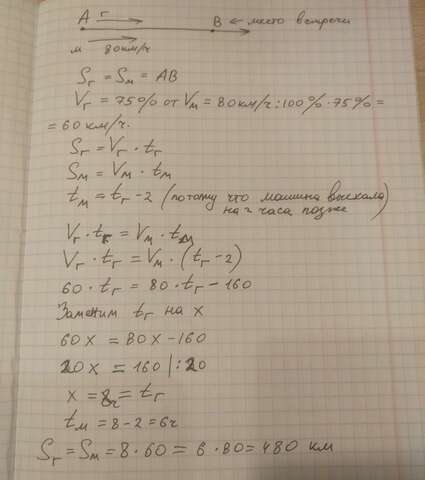 А г В ← место встречи
м 80км/ч
Sг = Sм = АВ
Vг = 75% от Vм = 80 км/ч : 100% · 75% =
= 60 км/ч.
Sг = Vг · tг
Sм = Vм · tм
tм = tг - 2 (потому что машина выехала
на 2 часа позже)
Vг · tг = Vм · tм
Vг · tг = Vм · (tг - 2)
60 · tг = 80 · tг - 160
Заменим tг на x
60x = 80x - 160
20x = 160 |:20
x = 8ч = tг
tм = 8 - 2 = 6ч
Sг = Sм = 8 · 60 = 6 · 80 = 480 км